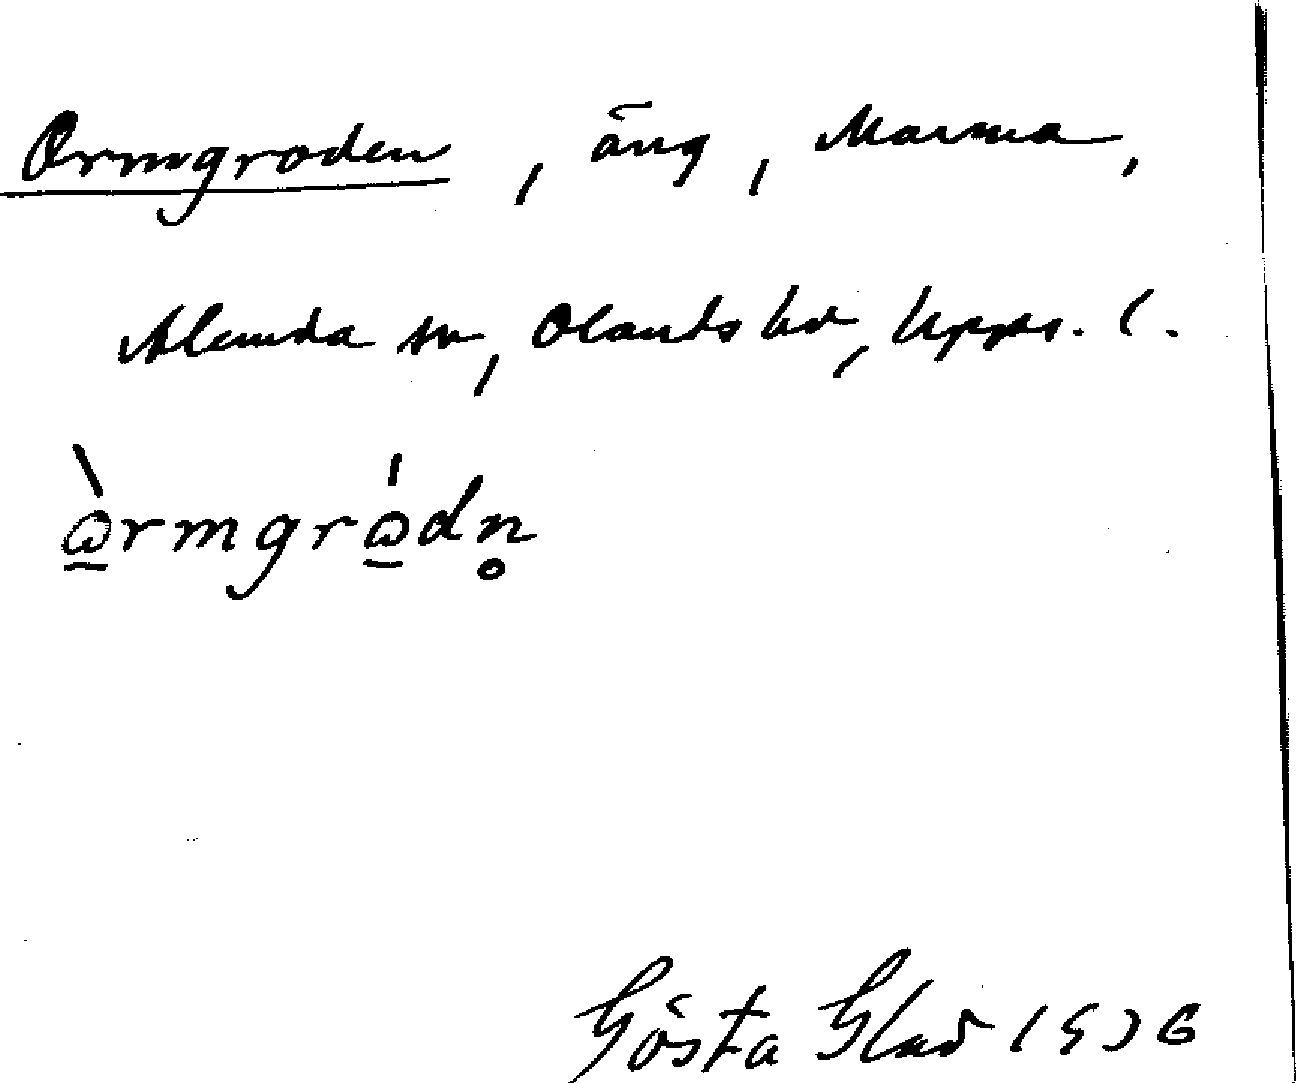 Ormgroden, äng, Marma,
Alunda sn, Olands hd, Upps. l.
ɷ̀rmgrɷ́dn̥
Gösta Glad 1936